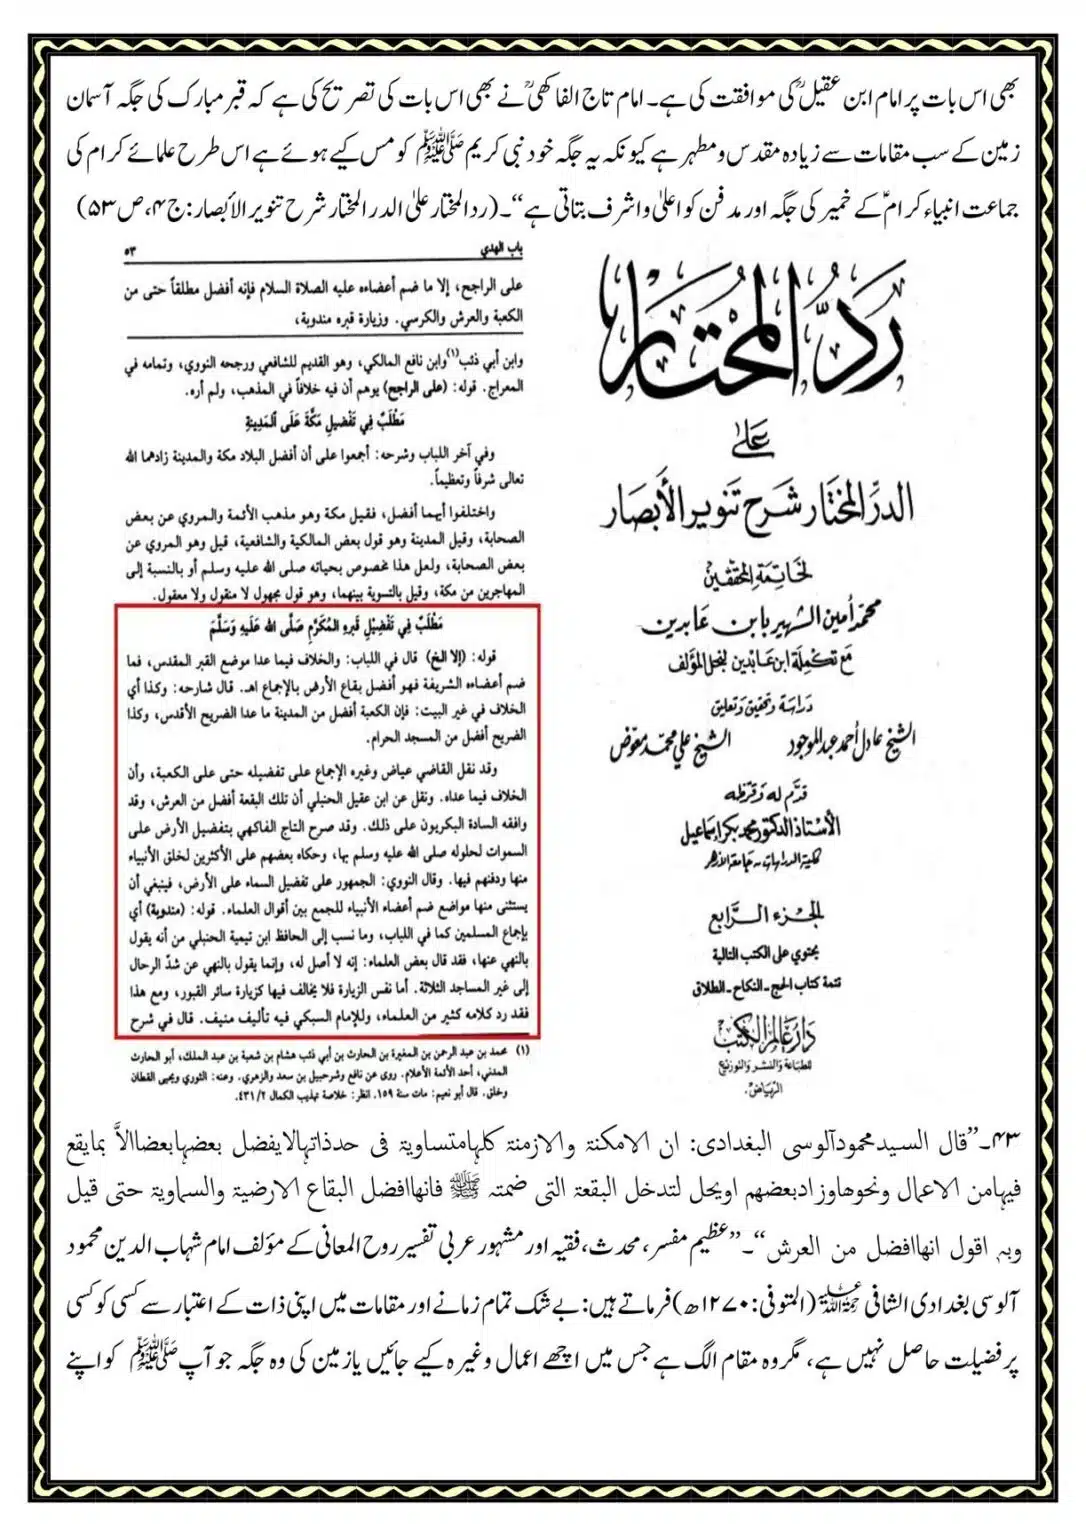 بھی اس بات پر امام ابن عقیلؒ کی موافقت کی ہے۔ امام تاج الفاکھیؒ نے بھی اس بات کی تصریح کی ہے کہ قبر مبارک کی جگہ آسمان
زمین کے سب مقامات سے زیادہ مقدس و مطہر ہے کیونکہ یہ جگہ خود نبی کریم ﷺ کو مس کیے ہوئے ہے اس طرح علمائے کرام کی
جماعت انبیاء کرامؑ کے خمیر کی جگہ اور مدفن کو اعلیٰ و اشرف بتاتی ہے‘‘۔ (رد المختار علیٰ الدر المختار شرح تنویر الأبصار: ج ۴، ص ۵۳)
رَدُّ المُحْتَار
عَلىٰ
الدر المختار شَرح تنوير الأبصَار
لخاتِمَةِ المحققين
محمّد أمين الشهير بابن عَابدين
مَع تكملة ابن عَابدين لنجل المؤلف
دراسَة وتحقيق وتعليق
الشيخ عادل أحمد عبد الموجود الشيخ علي محمّد معوّض
قدّم له وقرّظه
الأستاذ الدكتور محمد بكر إسماعيل
كلية الدراسات - جامعة الأزهر
الجُزء الرَّابع
يحتوي على الكتب التالية
تتمة كتاب الحج - النكاح - الطلاق
دَار عَالم الكتب
للطباعة والنشر والتوزيع
الرياض
باب الهدي ٥٣
على الراجح، إلا ما ضم أعضاءه عليه الصلاة السلام فإنه أفضل مطلقاً حتى من
الكعبة والعرش والكرسي. وزيارة قبره مندوبة،
وابن أبي ذئب(١) وابن نافع المالكي، وهو القديم للشافعي ورجحه النووي، وتمامه في
المعراج. قوله: (على الراجح) يوهم أن فيه خلافاً في المذهب، ولم أره.
مَطْلَبٌ فِي تَفْضِيلِ مَكَّةَ عَلَى المَدِينَةِ
وفي آخر اللباب وشرحه: أجمعوا على أن أفضل البلاد مكة والمدينة زادهما الله
تعالى شرفاً وتعظيماً.
واختلفوا أيهما أفضل، فقيل مكة وهو مذهب الأئمة والمروي عن بعض
الصحابة، وقيل المدينة وهو قول بعض المالكية والشافعية، قيل وهو المروي عن
بعض الصحابة، ولعل هذا مخصوص بحياته صلى الله عليه وسلم أو بالنسبة إلى
المهاجرين من مكة، وقيل بالتسوية بينهما، وهو قول مجهول لا منقول ولا معقول.
مَطْلَبٌ فِي تَفْضِيْلِ قَبْرِهِ المُكَرَّمِ صَلَّى الله عَلَيهِ وَسَلَّمَ
قوله: (إلا الخ) قال في اللباب: والخلاف فيما عدا موضع القبر المقدس، فما
ضم أعضاءه الشريفة فهو أفضل بقاع الأرض بالإجماع اهـ. قال شارحه: وكذا أي
الخلاف في غير البيت: فإن الكعبة أفضل من المدينة ما عدا الضريح الأقدس، وكذا
الضريح أفضل من المسجد الحرام.
وقد نقل القاضي عياض وغيره الإجماع على تفضيله حتى على الكعبة، وأن
الخلاف فيما عداه. ونقل عن ابن عقيل الحنبلي أن تلك البقعة أفضل من العرش، وقد
وافقه السادة البكريون على ذلك. وقد صرح التاج الفاكهي بتفضيل الأرض على
السموات لحلوله صلى الله عليه وسلم بها، وحكاه بعضهم على الأكثرين لخلق الأنبياء
منها ودفنهم فيها. وقال النووي: الجمهور على تفضيل السماء على الأرض، فينبغي أن
يستثنى منها مواضع ضم أعضاء الأنبياء للجمع بين أقوال العلماء. قوله: (مندوبة) أي
بإجماع المسلمين كما في اللباب، وما نسب إلى الحافظ ابن تيمية الحنبلي من أنه يقول
بالنهي عنها، فقد قال بعض العلماء: إنه لا أصل له، وإنما يقول بالنهي عن شدّ الرحال
إلى غير المساجد الثلاثة. أما نفس الزيارة فلا يخالف فيها كزيارة سائر القبور، ومع هذا
فقد رد كلامه كثير من العلماء، وللإمام السبكي فيه تأليف منيف. قال في شرح
(١) محمد بن عبد الرحمن بن المغيرة بن الحارث بن أبي ذئب هشام بن شعبة بن عبد الملك، أبو الحارث
المدني، أحد الأئمة الأعلام. روى عن نافع وشرحبيل بن سعد والزهري. وعنه: الثوري ويحيى القطان
وخلق. قال أبو نعيم: مات سنة ١٥٩. انظر: خلاصة تهذيب الكمال ٤٣١/٢.
۴۳۔ ’’قال السيد محمود آلوسى البغدادى: ان الامكنة والازمنة كلها متساوية فى حد ذاتها لا يفضل بعضها بعضا الاَّ بما يقع
فيها من الاعمال ونحوها وزاد بعضهم او يحل لتدخل البقعة التى ضمته ﷺ فانها افضل البقاع الارضية والسماوية حتى قيل
وبه اقول انها افضل من العرش‘‘۔ ’’عظیم مفسر، محدث، فقیہ اور مشہور عربی تفسیر روح المعانی کے مؤلف امام شہاب الدین محمود
آلوسی بغدادی الشافی رحمۃ اللہ علیہ (المتوفی: ۱۲۷۰ھ) فرماتے ہیں: بے شک تمام زمانے اور مقامات میں اپنی ذات کے اعتبار سے کسی کو کسی
پر فضیلت حاصل نہیں ہے، مگر وہ مقام الگ ہے جس میں اچھے اعمال وغیرہ کیے جائیں یا زمین کی وہ جگہ جو آپ ﷺ کو اپنے